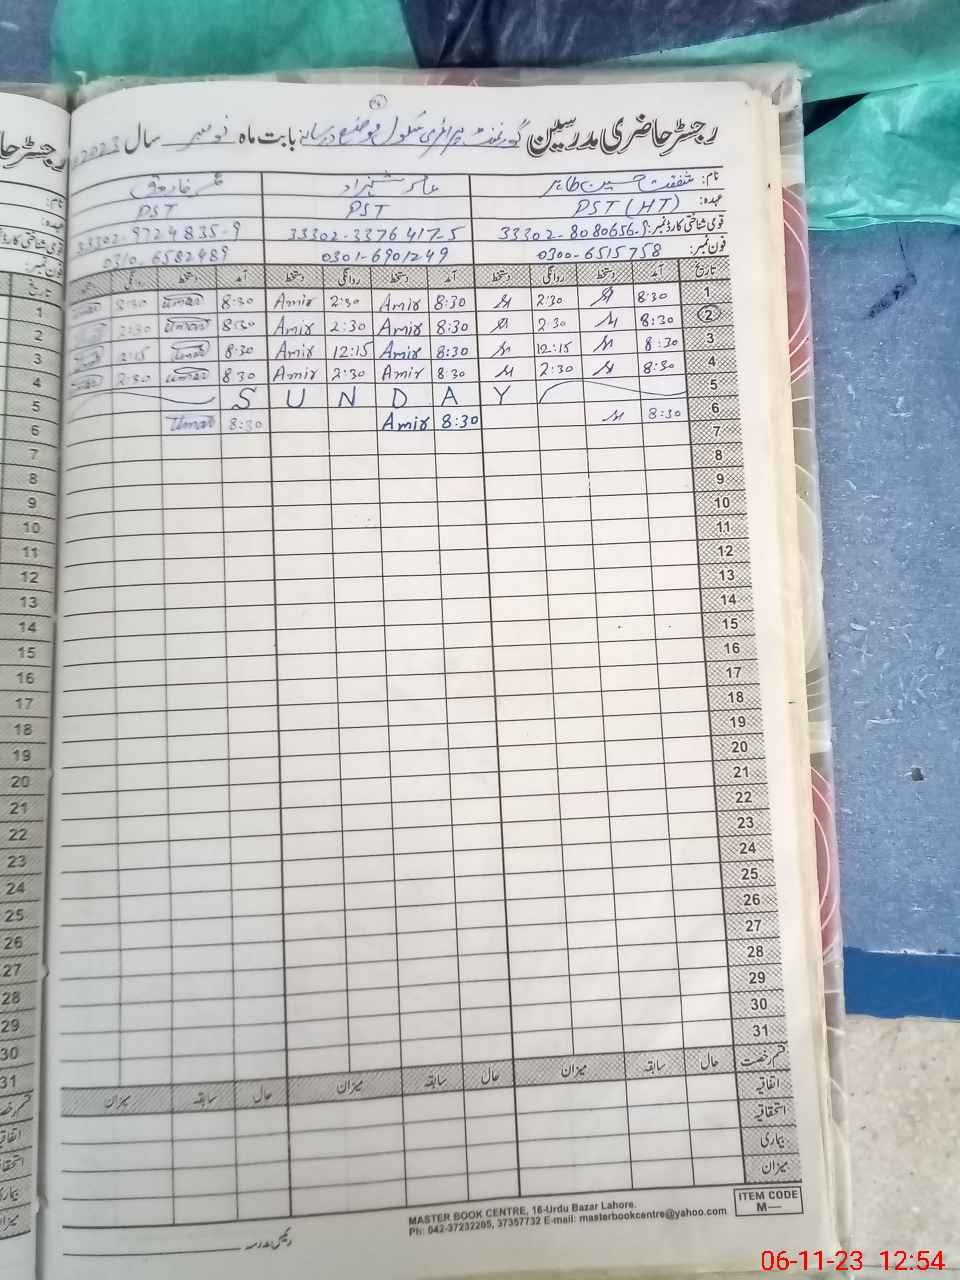 رجسٹر حاضری مدرسین گورنمنٹ پرائمری سکول موضع بابت ماہ نومبر سال 2023
نام: شفقت حسین طاہر عامر شہزاد عمر فاروق
عہدہ: PST (HT) PST PST
قومی شناختی کارڈ نمبر: 33302-8080656-9 33302-3376417-5 33302-9724835-9
فون نمبر: 0300-6515758 0301-6901249 0310-6582489
تاریخ آمد دستخط روانگی دستخط آمد دستخط روانگی دستخط آمد دستخط روانگی دستخط
1 8:30 2:30 8:30 Amir 2:30 Amir 8:30 Umar 8:30
2 8:30 2:30 8:30 Amir 2:30 Amir 8:30 Umar 2:30
3 8:30 12:15 8:30 Amir 12:15 Amir 8:30 Umar 2:15
4 8:30 2:30 8:30 Amir 2:30 Amir 8:30 Umar 2:30
5 SUNDAY
6 8:30 8:30 Amir 8:30 Umar
7
8
9
10
11
12
13
14
15
16
17
18
19
20
21
22
23
24
25
26
27
28
29
30
31
قسم رخصت حال سابقہ میزان حال سابقہ میزان حال سابقہ میزان
اتفاقیہ
استحقاقیہ
بیماری
میزان
ITEM CODE
M—
MASTER BOOK CENTRE, 16-Urdu Bazar Lahore.
Ph: 042-37232205, 37357732 E-mail: masterbookcentre@yahoo.com
رئیس مدرسہ
06-11-23 12:54